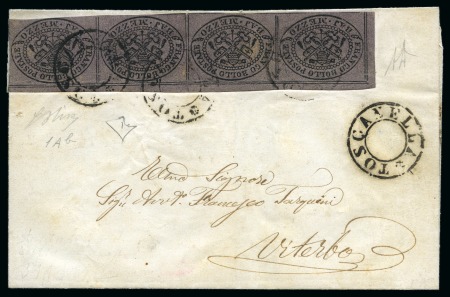 FRANCO BOLLO POSTALE
BAJ MEZZO
FRANCO BOLLO POSTALE
BAJ MEZZO
FRANCO BOLLO POSTALE
BAJ MEZZO
FRANCO BOLLO POSTALE
BAJ MEZZO
1A
1Ab
TOSCANELLA
Signore
Francesco Tarquini
Viterbo